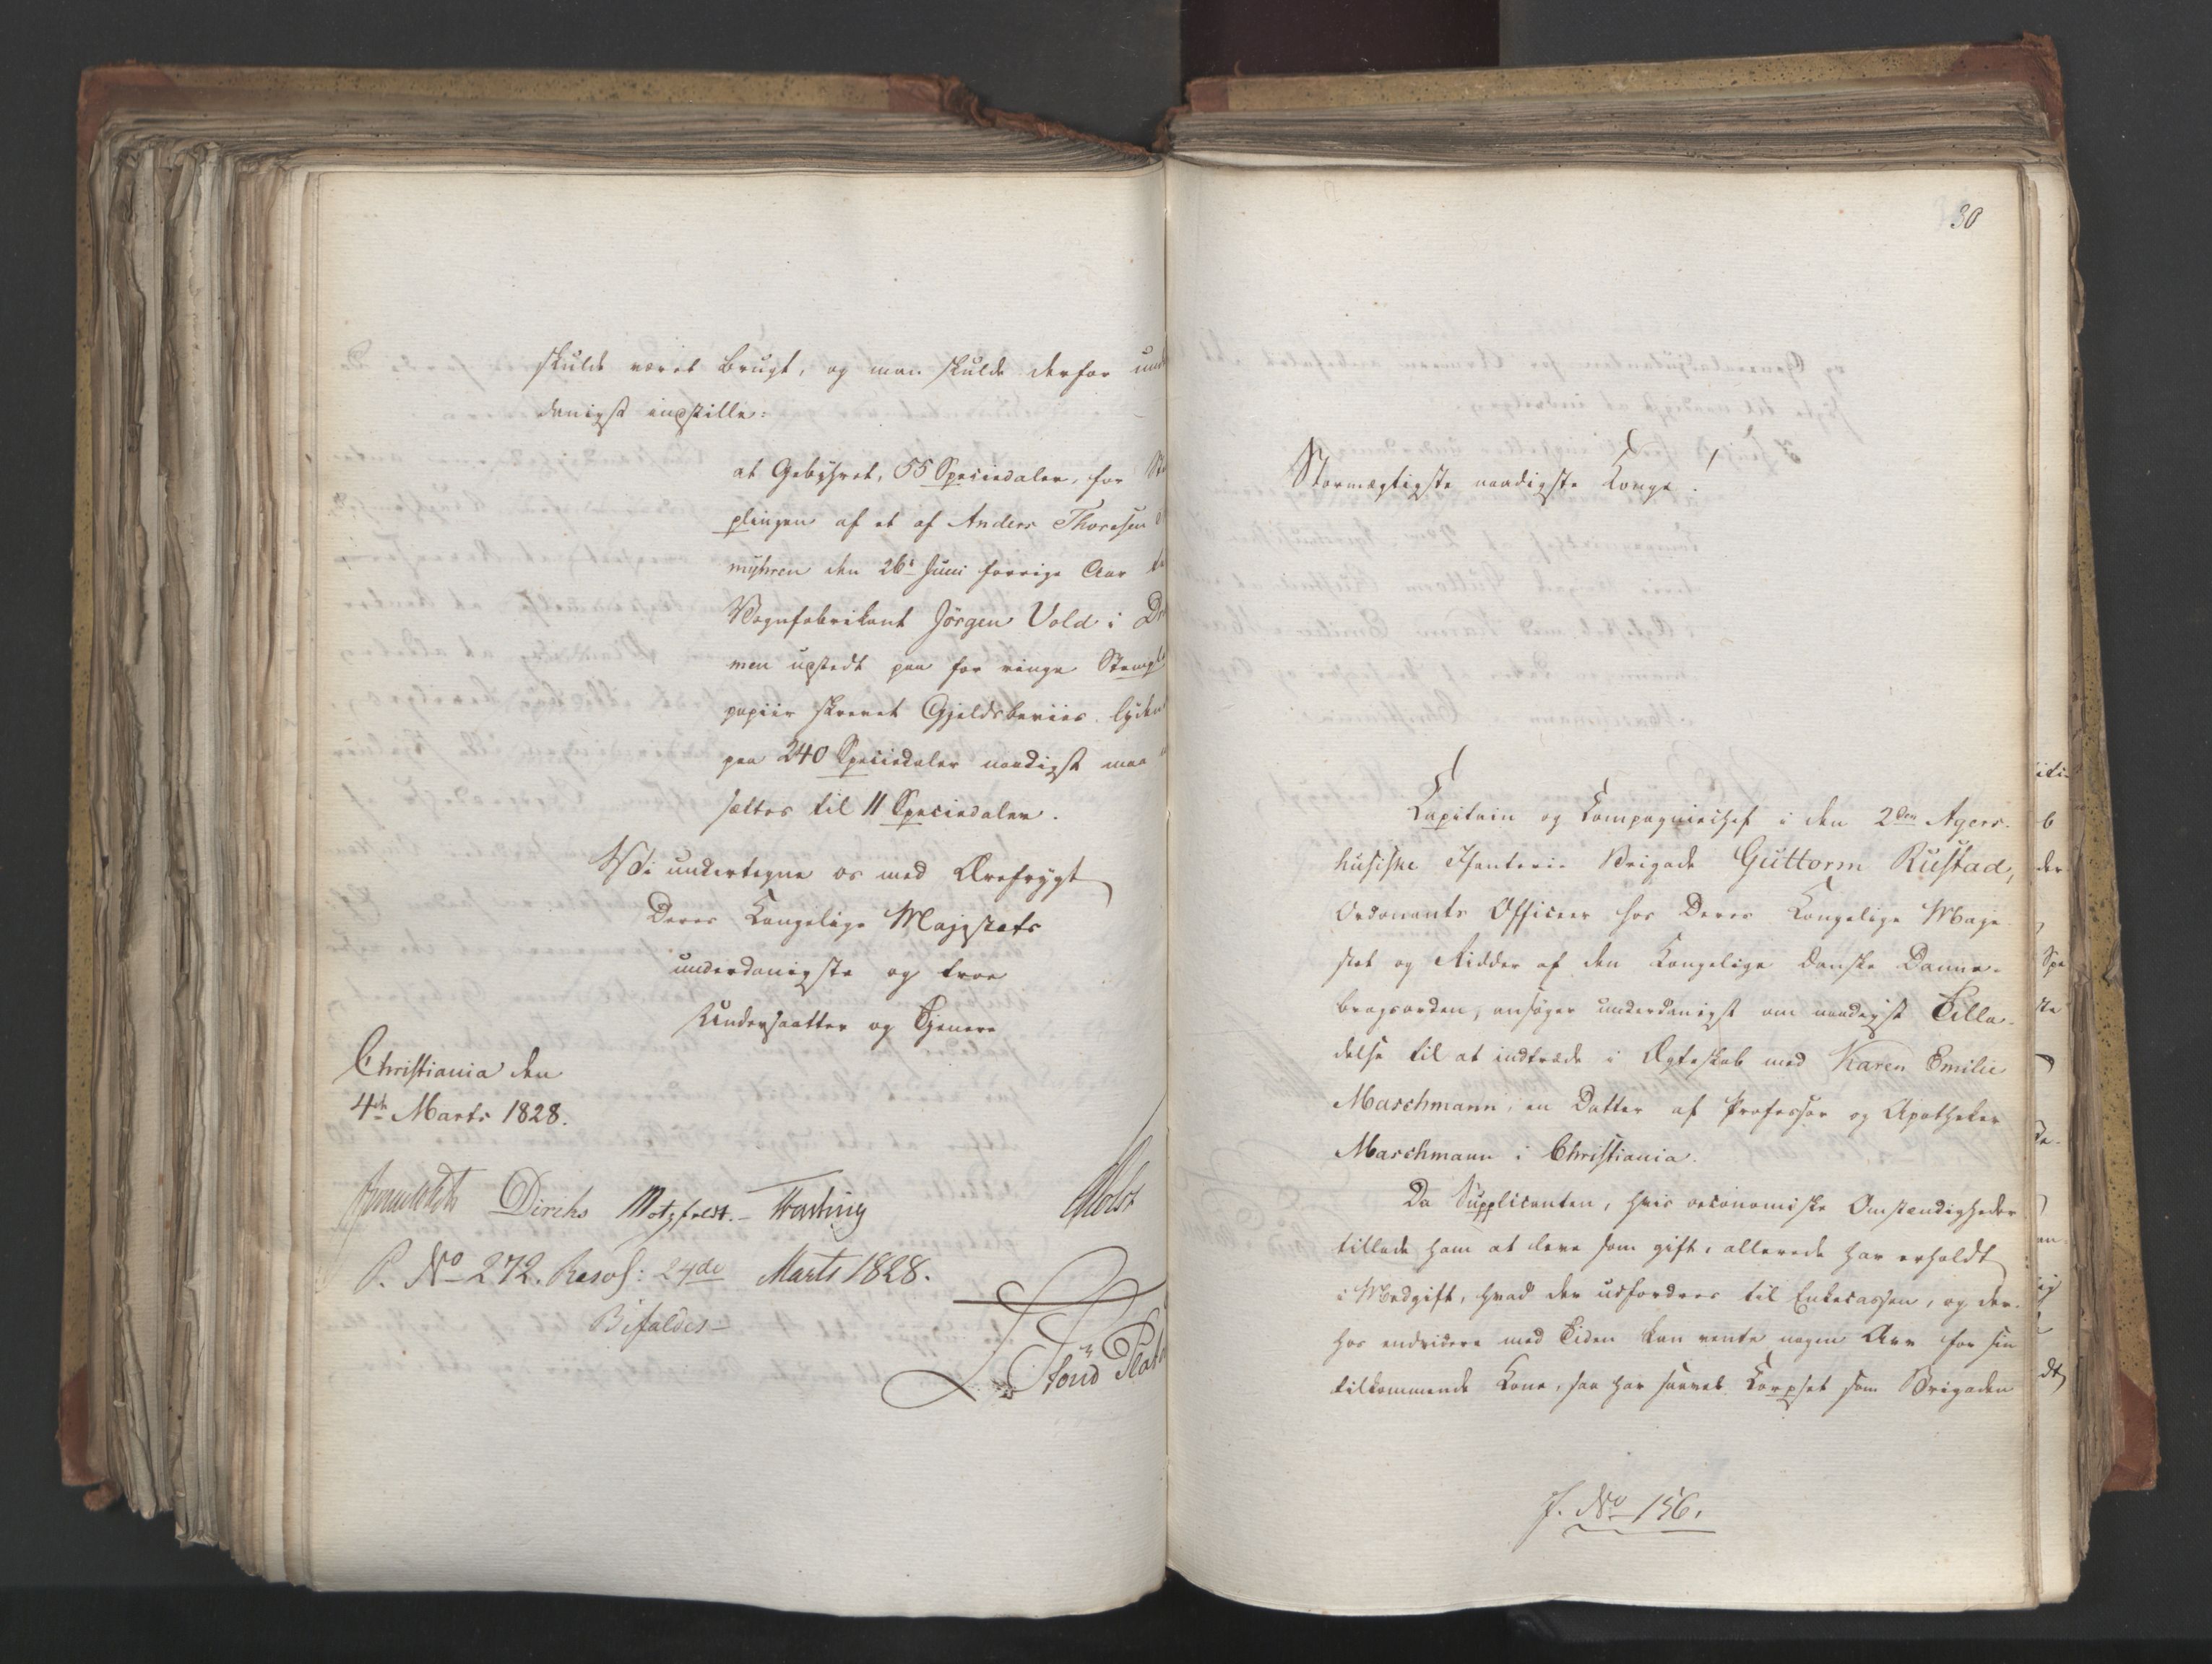 skulde været brugt, og man skulde derfor und
danigst indstille:
at Gebyhret, 55 Speciedaler, for St
plingen af et af Anders Thoresen
myhren den 26de Juni forrige Aar til
Vognfabrikant Jörgen Vold i Dr
men udstedt paa for ringe Stempl
papiir skrevet Gjeldsbeviis, lyden
paa 240 Speciedaler naadigst maa
sættes til 11 Speciedaler.
Vi undertegne os med Ærefrygt
Deres Kongelige Majestæts
underdanigste og troe
Undersaatter og Tjenere
Christiania den
4de Marts 1828.
Diriks Motzfeldt. Hasting Holst
P. No 272. Resol: 24de Marts 1828.
Bifaldes
30
Stormægtigste naadigste Konge!
Capitain og Compagniechef i den 2den Agers-
husiske Infanterie Brigade Guttorm Rustad,
Ordonants Officeer hos Deres Kongelige Maje-
stæt og Ridder af den Kongelige danske Danne-
brogsorden, ansøger underdanigst om naadigst Tilla-
delse til at indtræde i Ægteskab med Karen Emilie
Maschmann, en Datter af Professor og Apotheker
Maschmann i Christiania.
Da Supplicanten, hvis oeconomiske Omstændigheder
tillade ham at leve som gift, allerede har erholdt
i Medgift, hvad der udfordres til Enkecassen, og der-
hos endvidere med Tiden kan vente nogen Arv for sin
tilkommende Kone, saa har saavel Corpset som Brigaden
J. No 156.